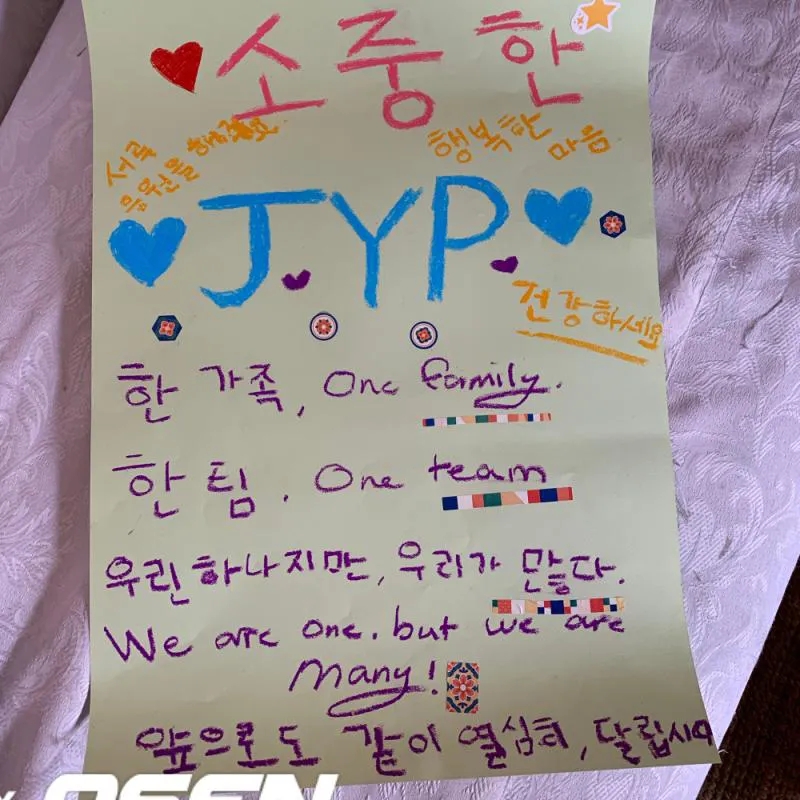 소중한
서로
응원을 해줘요
행복한 마음
J.Y.P.
건강하세요
한 가족, One family.
한 팀. One team
우린 하나지만, 우리가 많다.
We are one. but we are
Many!
앞으로도 같이 열심히, 달립시다
OSEN